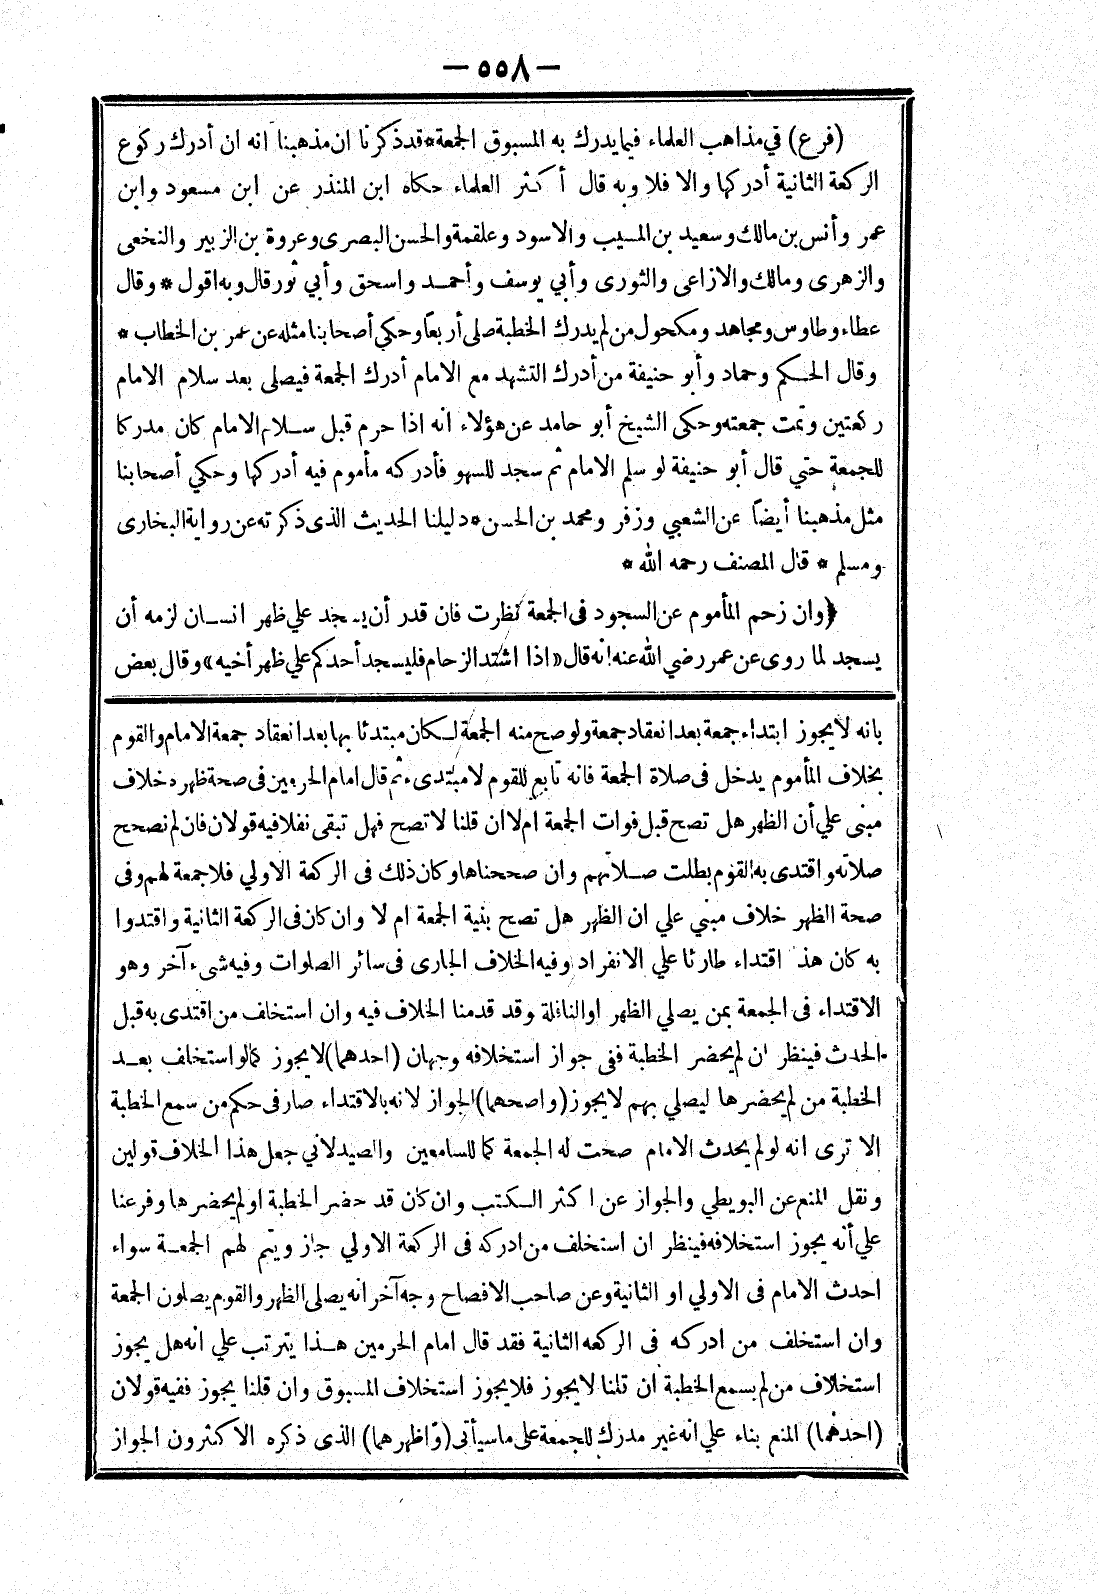 — ٥٥٨ —
(فرع) في مذاهب العلماء فيما يدرك به المسبوق الجمعة * قد ذكرنا ان مذهبنا انه ان أدرك ركوع
الركعة الثانية أدركها والا فلا وبه قال أكثر العلماء حكاه ابن المنذر عن ابن مسعود وابن
عمر وأنس بن مالك وسعيد بن المسيب والاسود وعلقمة والحسن البصرى وعروة بن الزبير والنخعى
والزهرى ومالك والازاعى والثورى وأبي يوسف وأحمـد واسحق وأبي ثور قال وبه اقول * وقال
عطاء وطاوس ومجاهد ومكحول من لم يدرك الخطبة صلى أربعاً وحكي أصحابنا مثله عن عمر بن الخطاب *
وقال الحـكم وحماد وأبو حنيفة من أدرك التشهد مع الامام أدرك الجمعة فيصلى بعد سلام الامام
ركعتين وتمت جمعته وحكى الشيخ أبو حامد عن هؤلاء انه اذا حرم قبل سـلام الامام كان مدركا
للجمعة حتي قال أبو حنيفة لو سلم الامام ثم سجد للسهو فأدركه مأموم فيه أدركها وحكي أصحابنا
مثل مذهبنا أيضاً عن الشعبي وزفر ومحمد بن الحسن * دليلنا الحديث الذى ذكرته عن رواية البخارى
ومسلم * قال المصنف رحمه الله *
﴿وان زحم المأموم عن السجود فى الجمعة نظرت فان قدر أن يسجد علي ظهر انسـان لزمه أن
يسجد لما روى عن عمر رضي الله عنه انه قال «اذا اشتد الزحام فليسجد أحدكم علي ظهر أخيه» وقال بعض
بانه لا يجوز ابتداء جمعة بعد انعقاد جمعة ولو صح منه الجمعة لـكان مبتدئا بها بعد انعقاد جمعة الامام والقوم
بخلاف المأموم يدخل فى صلاة الجمعة فانه تابع للقوم لا مبتدىء ثم قال امام الحرمين فى صحة ظهره خلاف
مبنى علي أن الظهر هل تصح قبل فوات الجمعة ام لا ان قلنا لا تصح فهل تبقى نفلا فيه قولان فان لم نصحح
صلاته واقتدى به القوم بطلت صـلاتهم وان صححناها وكان ذلك فى الركعة الاولي فلا جمعة لهم وفى
صحة الظهر خلاف مبني علي ان الظهر هل تصح بنية الجمعة ام لا وان كان فى الركعة الثانية واقتدوا
به كان هذا اقتداء طارئا علي الانفراد وفيه الخلاف الجارى فى سائر الصلوات وفيه شىء آخر وهو
الاقتداء فى الجمعة بمن يصلي الظهر او النافلة وقد قدمنا الخلاف فيه وان استخلف من اقتدى به قبل
الحدث فينظر ان لم يحضر الخطبة ففى جواز استخلافه وجهان (احدهما) لا يجوز كما لو استخلف بعـد
الخطبة من لم يحضرها ليصلي بهم لا يجوز (واصحهما) الجواز لانه بالاقتداء صار فى حكم من سمع الخطبة
الا ترى انه لو لم يحدث الامام صحت له الجمعة كما للسامعين والصيدلاني جعل هذا الخلاف قولين
ونقل المنع عن البويطي والجواز عن اكثر الـكتب وان كان قد حضر الخطبة او لم يحضرها وفرعنا
علي أنه يجوز استخلافه فينظر ان استخلف من ادركه فى الركعة الاولي جاز ويتم لهم الجمعـة سواء
احدث الامام فى الاولي او الثانية وعن صاحب الافصاح وجه آخر انه يصلى الظهر والقوم يصلون الجمعة
وان استخلف من ادركه فى الركعه الثانية فقد قال امام الحرمين هـذا يترتب علي انه هل يجوز
استخلاف من لم يسمع الخطبة ان قلنا لا يجوز فلا يجوز استخلاف المسبوق وان قلنا يجوز ففيه قولان
(احدهما) المنع بناء علي انه غير مدرك للجمعة على ما سيأتى (واظهرهما) الذى ذكره الاكثرون الجواز